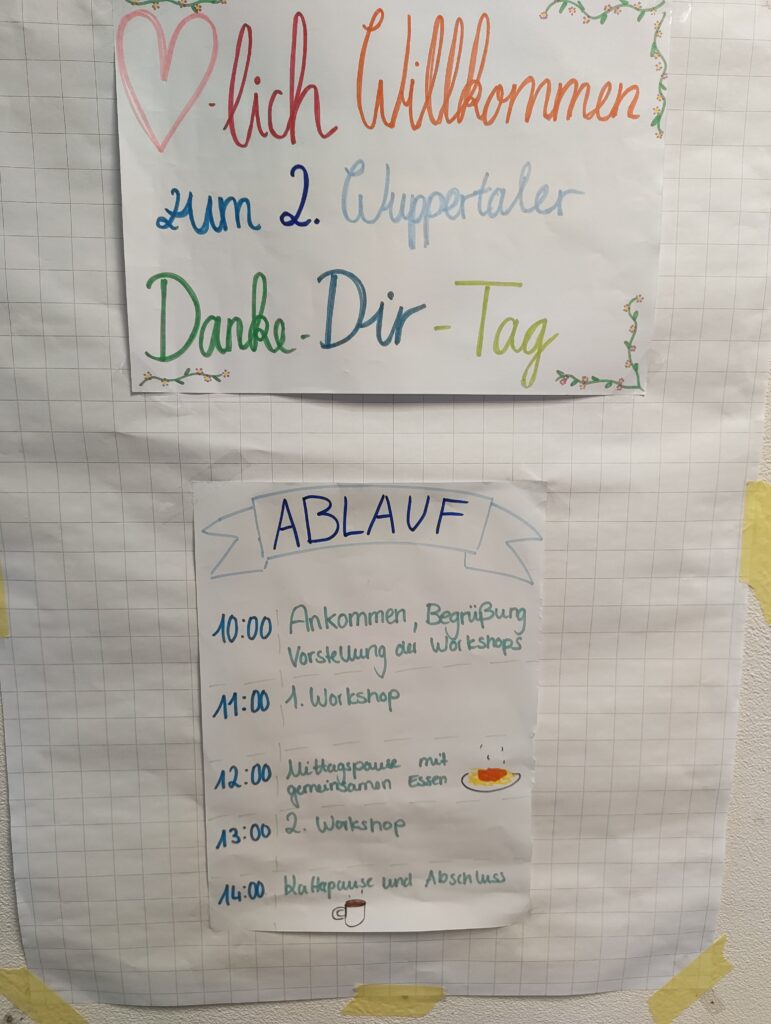 -lich Willkommen
zum 2. Wuppertaler
Danke-Dir-Tag
ABLAUF
10:00 Ankommen, Begrüßung
Vorstellung der Workshops
11:00 1. Workshop
12:00 Mittagspause mit
gemeinsamen Essen
13:00 2. Workshop
14:00 Kaffepause und Abschluss